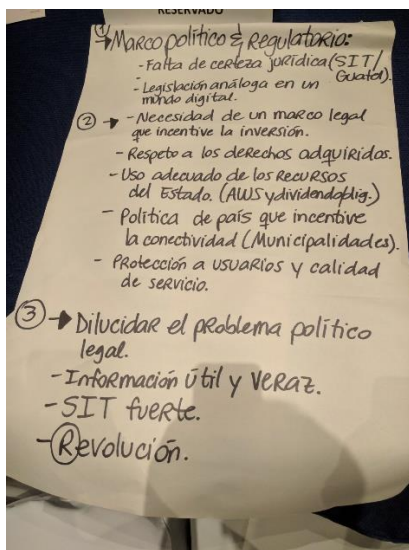 RESERVADO
① → Marco político & Regulatorio:
- Falta de certeza jurídica (SIT/
Guatel).
- Legislación análoga en un
mundo digital.
② → - Necesidad de un marco legal
que incentive la inversión.
- Respeto a los derechos adquiridos.
- Uso adecuado de los recursos
del Estado. (AWS y dividendo dig.)
- Política de país que incentive
la conectividad (Municipalidades).
- Protección a usuarios y calidad
de servicio.
③ → Dilucidar el problema político
legal.
- Información útil y veraz.
- SIT fuerte.
- Revolución.